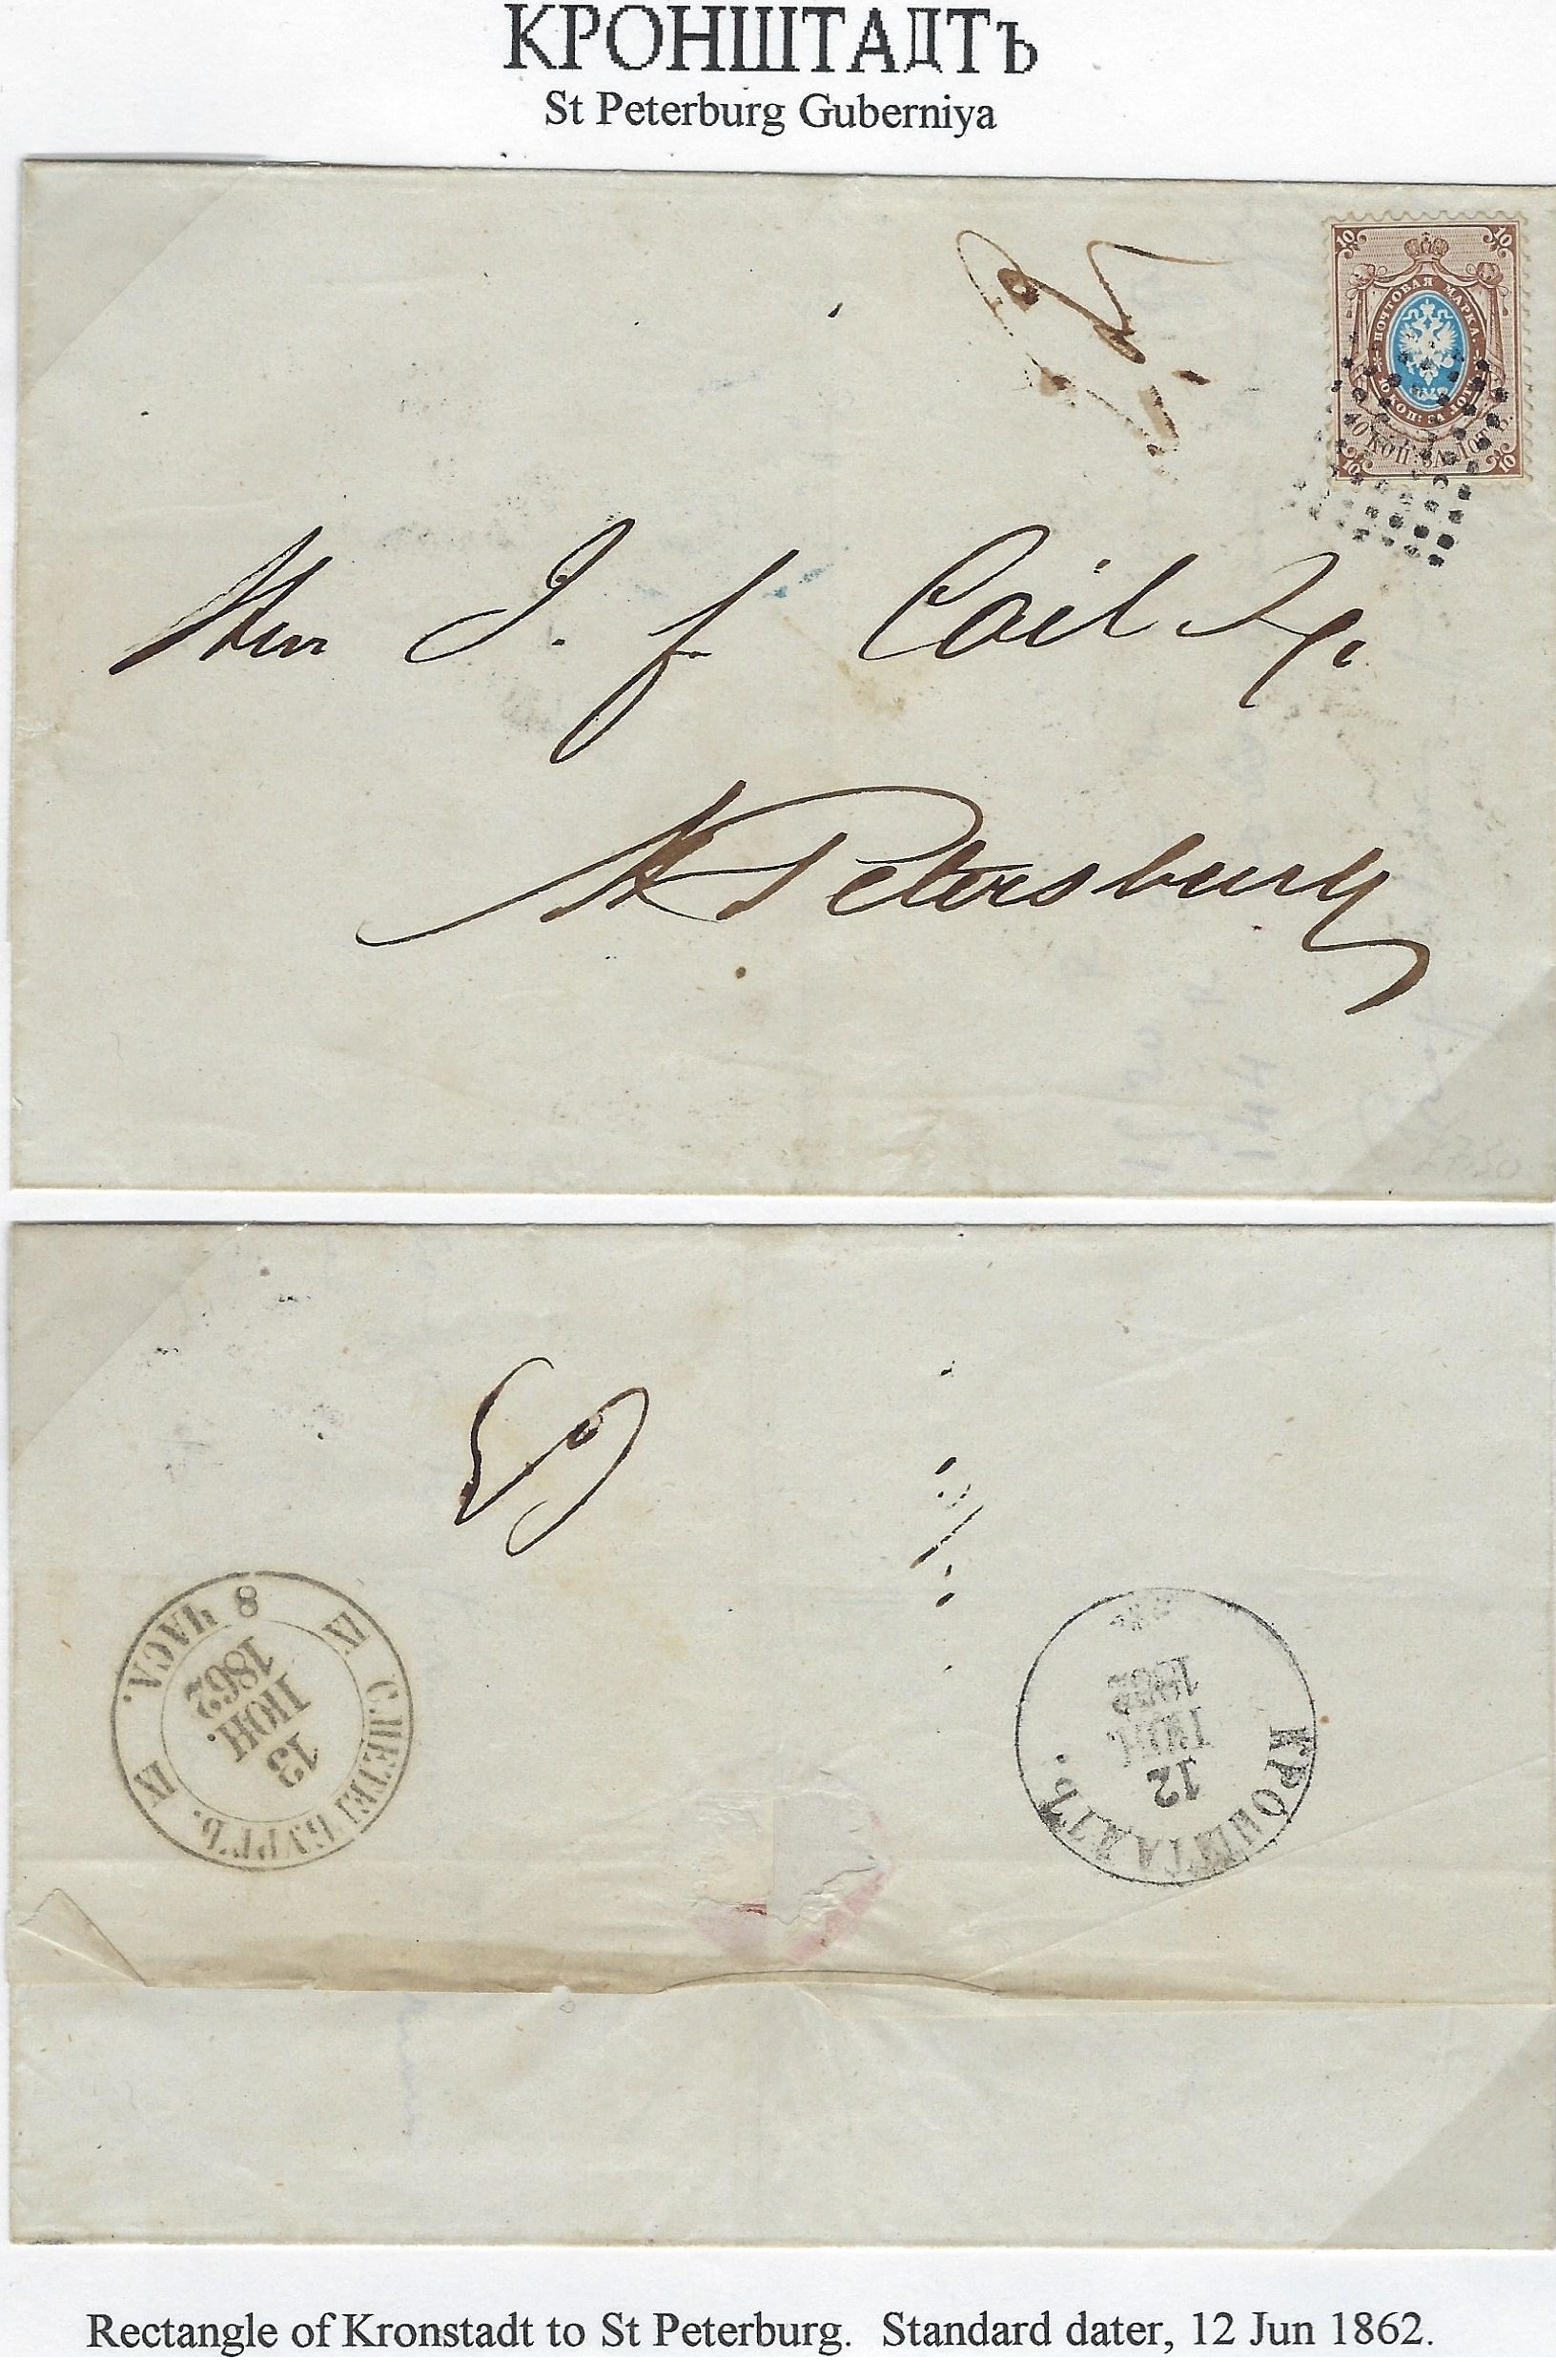 КРОНШТАДТЪ
St Peterburg Guberniya
10 10
ПОЧТОВАЯ МАРКА
10 КОП: ЗА ЛОТЪ
10 КОП: ЗА ЛОТЪ.
10 10
J. f. Coil
St Petersburg
8 ЧАСА.
IX С.ПЕТЕРБУРГЪ. IX
13
ІЮН.
1862
КРОНШТАДТЪ.
12
ІЮН.
1862
Rectangle of Kronstadt to St Peterburg. Standard dater, 12 Jun 1862.